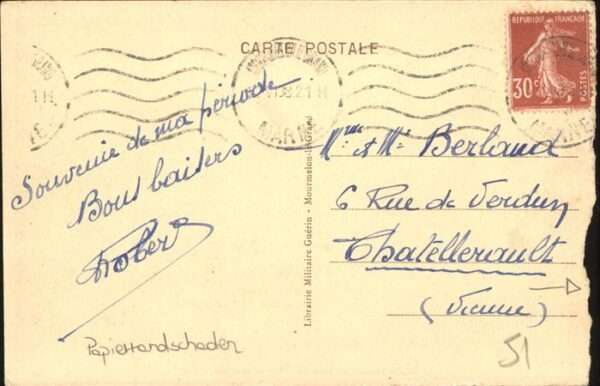 CARTE POSTALE
REPUBLIQUE FRANÇAISE
30c
POSTES
MARNE
Souvenir de ma période
Bons baisers
Robert
Mme & Mr Berland
6 Rue de Verdun
Chatellerault
(Vienne)
Librairie Militaire Guérin - Mourmelon-le-Grand
Papierrandschaden
51